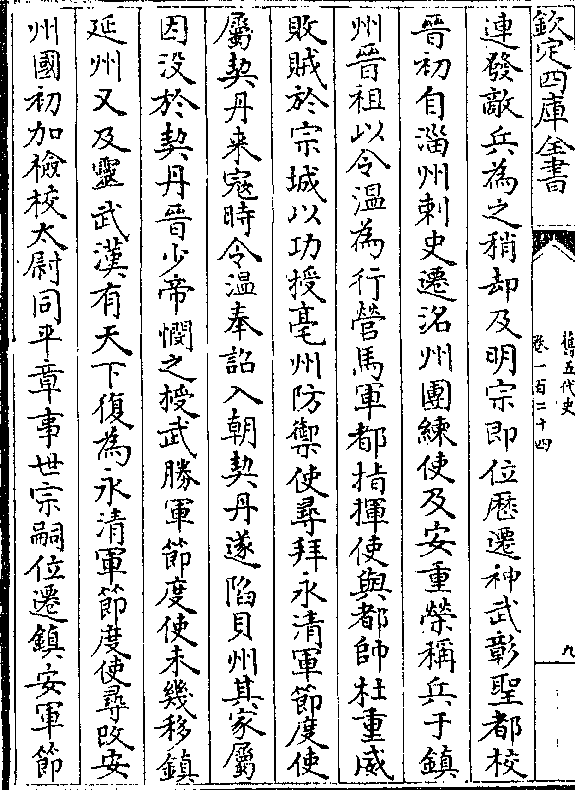 欽定四庫全書
舊五代史
卷一百二十四
九
連發敵兵為之稍却及明宗即位歷遷神武彰聖都校
晉初自淄州刺史遷洺州團練使及安重榮稱兵于鎮
州晉祖以令溫為行營馬軍都指揮使與都帥杜重威
敗賊於宗城以功授亳州防禦使尋拜永清軍節度使
屬契丹來寇時令溫奉詔入朝契丹遂陷貝州其家屬
因没於契丹晉少帝憫之授武勝軍節度使未幾移鎮
延州又及靈武漢有天下復為永清軍節度使尋改安
州國初加檢校太尉同平章事世宗嗣位遷鎮安軍節